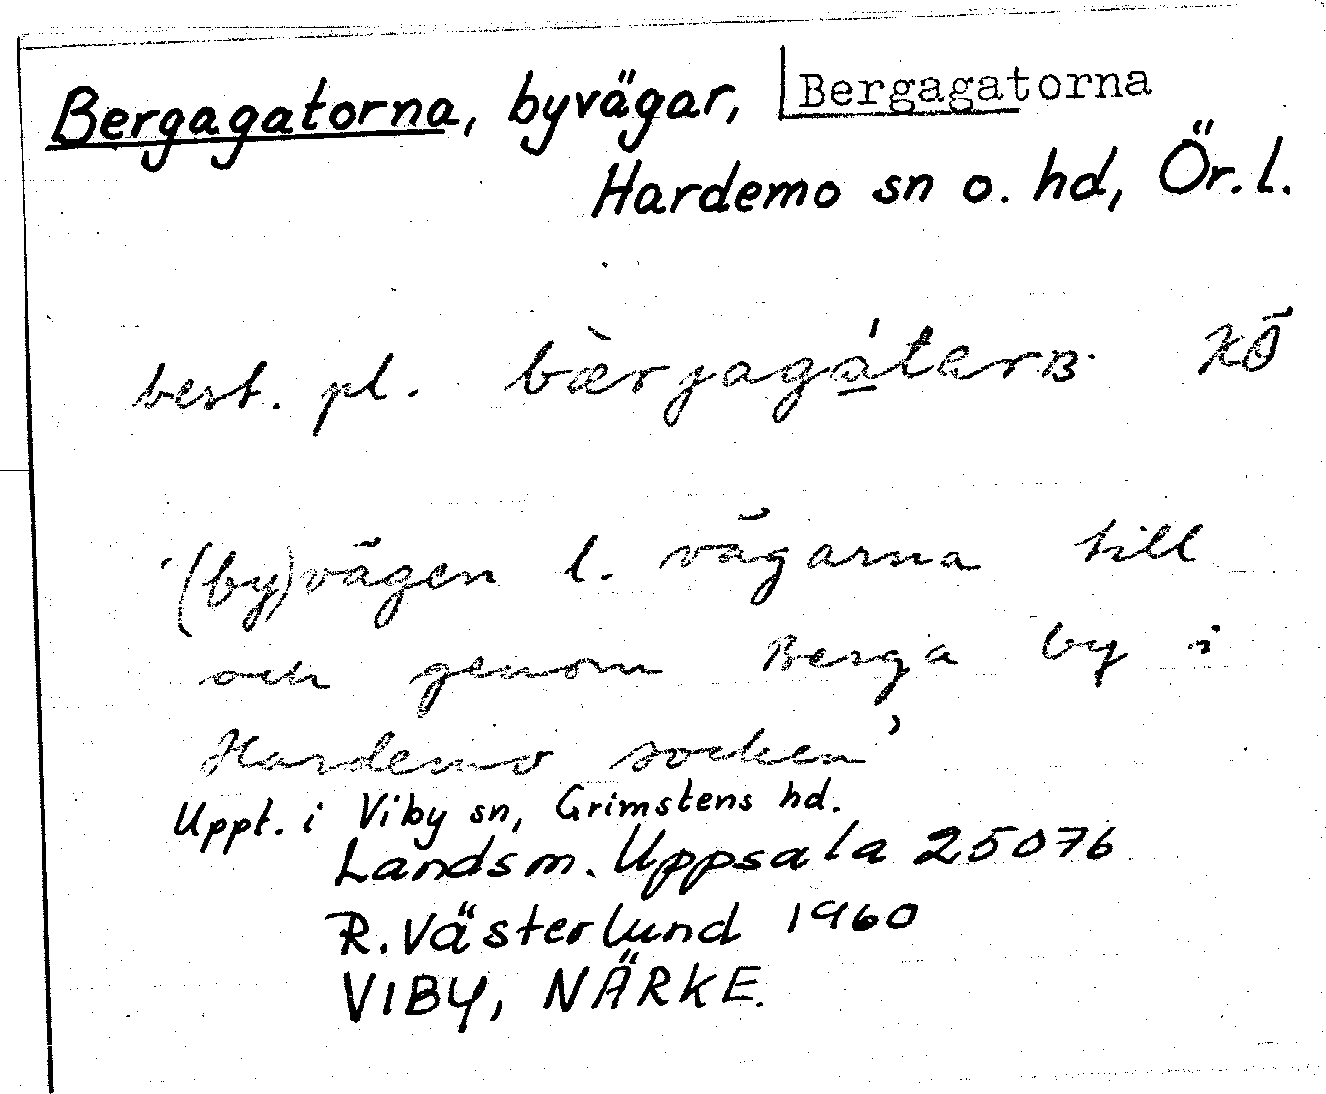 Bergagatorna, byvägar, Bergagatorna
Hardemo sn o. hd, Ör. l.
best. pl. bæ̀rjagátarʙ KÖ
'(by)vägen l. vägarna till
och genom Berga by i
Hardemo socken'
Uppt. i Viby sn, Grimstens hd.
Landsm. Uppsala 25076
R. Västerlund 1960
VIBY, NÄRKE.